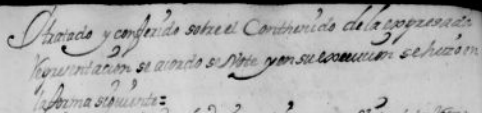 tratado y conferido sobre el Conthenido de la expresada
Representación se acordo se Vote y en su execucion se hizo en
la forma siguiente=